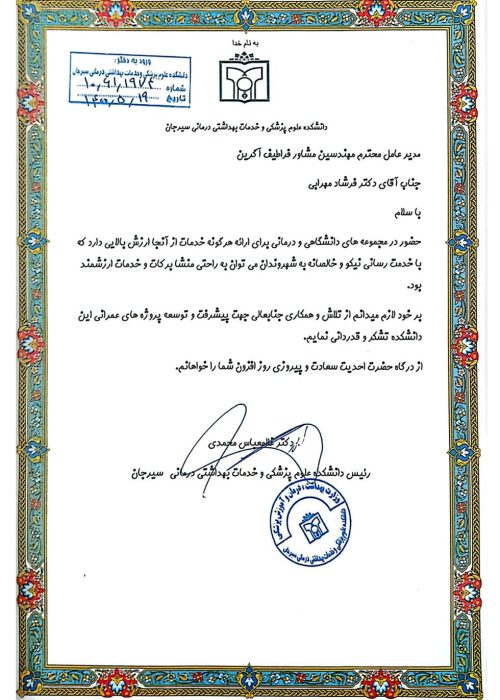 به نام خدا
ورود به دفتر:
دانشکده علوم پزشکی وخدمات بهداشتی درمانی سیرجان
شماره ۱۰,۶۱,۱۹۷۴
تاریخ ۱۴۰۰,۵,۱۹
دانشکده علوم پزشکی و خدمات بهداشتی درمانی سیرجان
مدیر عامل محترم مهندسین مشاور فراطیف آگرین
جناب آقای دکتر فرشاد مهرابی
با سلام
حضور در مجموعه های دانشگاهی و درمانی برای ارائه هرگونه خدمات از آنجا ارزش بالایی دارد که
با خدمت رسانی نیکو و خالصانه به شهروندان می توان به راحتی منشا برکات و خدمات ارزشمند
بود.
بر خود لازم میدانم از تلاش و همکاری جنابعالی جهت پیشرفت و توسعه پروژه های عمرانی این
دانشکده تشکر و قدردانی نمایم.
از درگاه حضرت احدیت سعادت و پیروزی روز افزون شما را خواهانم.
دکتر غلامعباس محمدی
رئیس دانشکده علوم پزشکی و خدمات بهداشتی درمانی سیرجان
وزارت بهداشت، درمان و آموزش پزشکی
دانشکده علوم پزشکی و خدمات بهداشتی درمانی سیرجان